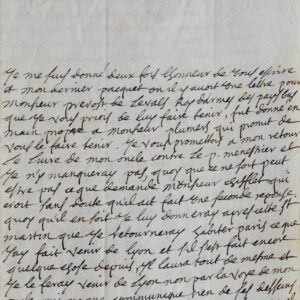 Je me suis donné deux fois l'honneur de vous escrire
et mon dernier pacquet ou il y avoit une lettre pour
monsieur prevost de
que je vous prions de luy faire tenir, fut donné en
main propre a monsieur plumers qui promit de
vous le faire tenir. Je vous promettois a mon retour
le livre de mon oncle contre le p. menestrier et
Je n'y manqueray pas, quoy que ce ne soit peut
estre pas ce que demande monsieur qui
croit sans doute qu'il ait fait une seconde reponse
quoy qu'il en soit Je luy donneray avec cette st.
martin que Je retourneray a paris ce que
J'ay fait venir de lyon et s'il s'est fait encor
quelque chose depuis, Il l'aura tout de mesme et
Je le feray venir de lyon non par la voye de mon
communique rien de ses desseins